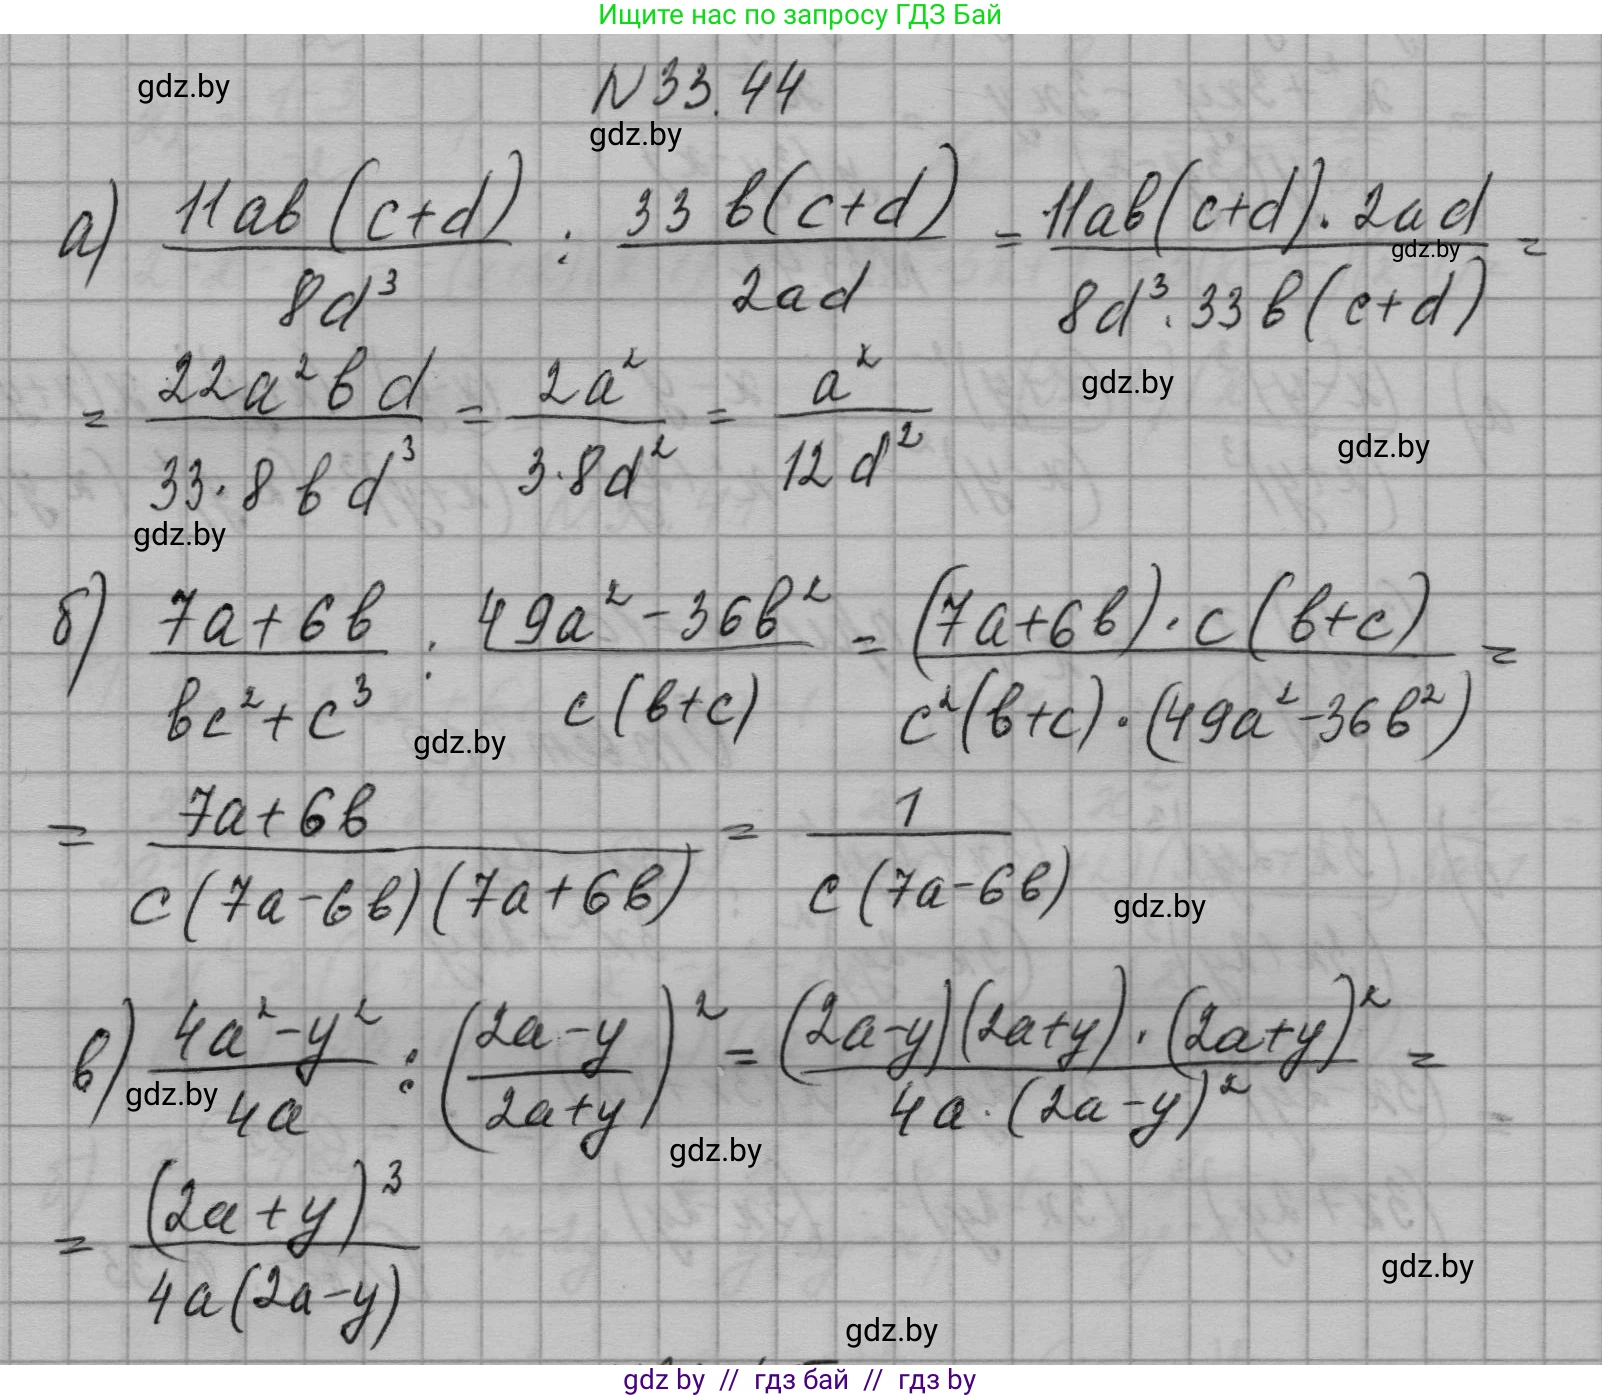 Ищите нас по запросу ГДЗ Бай
gdz.by
N 33.44
gdz.by
а) 11ab(c+d)/8d³ : 33b(c+d)/2ad = 11ab(c+d)·2ad/8d³·33b(c+d) =
gdz.by
= 22a²bd/33·8bd³ = 2a²/3·8d² = a²/12d²
gdz.by
gdz.by
gdz.by
б) 7a+6b/bc²+c³ : 49a²-36b²/c(b+c) = (7a+6b)·c(b+c)/c²(b+c)·(49a²-36b²) =
gdz.by
= 7a+6b/c(7a-6b)(7a+6b) = 1/c(7a-6b)
gdz.by
в) 4a²-y²/4a : (2a-y/2a+y)² = (2a-y)(2a+y)·(2a+y)²/4a·(2a-y)² =
gdz.by
gdz.by
= (2a+y)³/4a(2a-y)
gdz.by
gdz.by
gdz by // гдз бай // гдз by